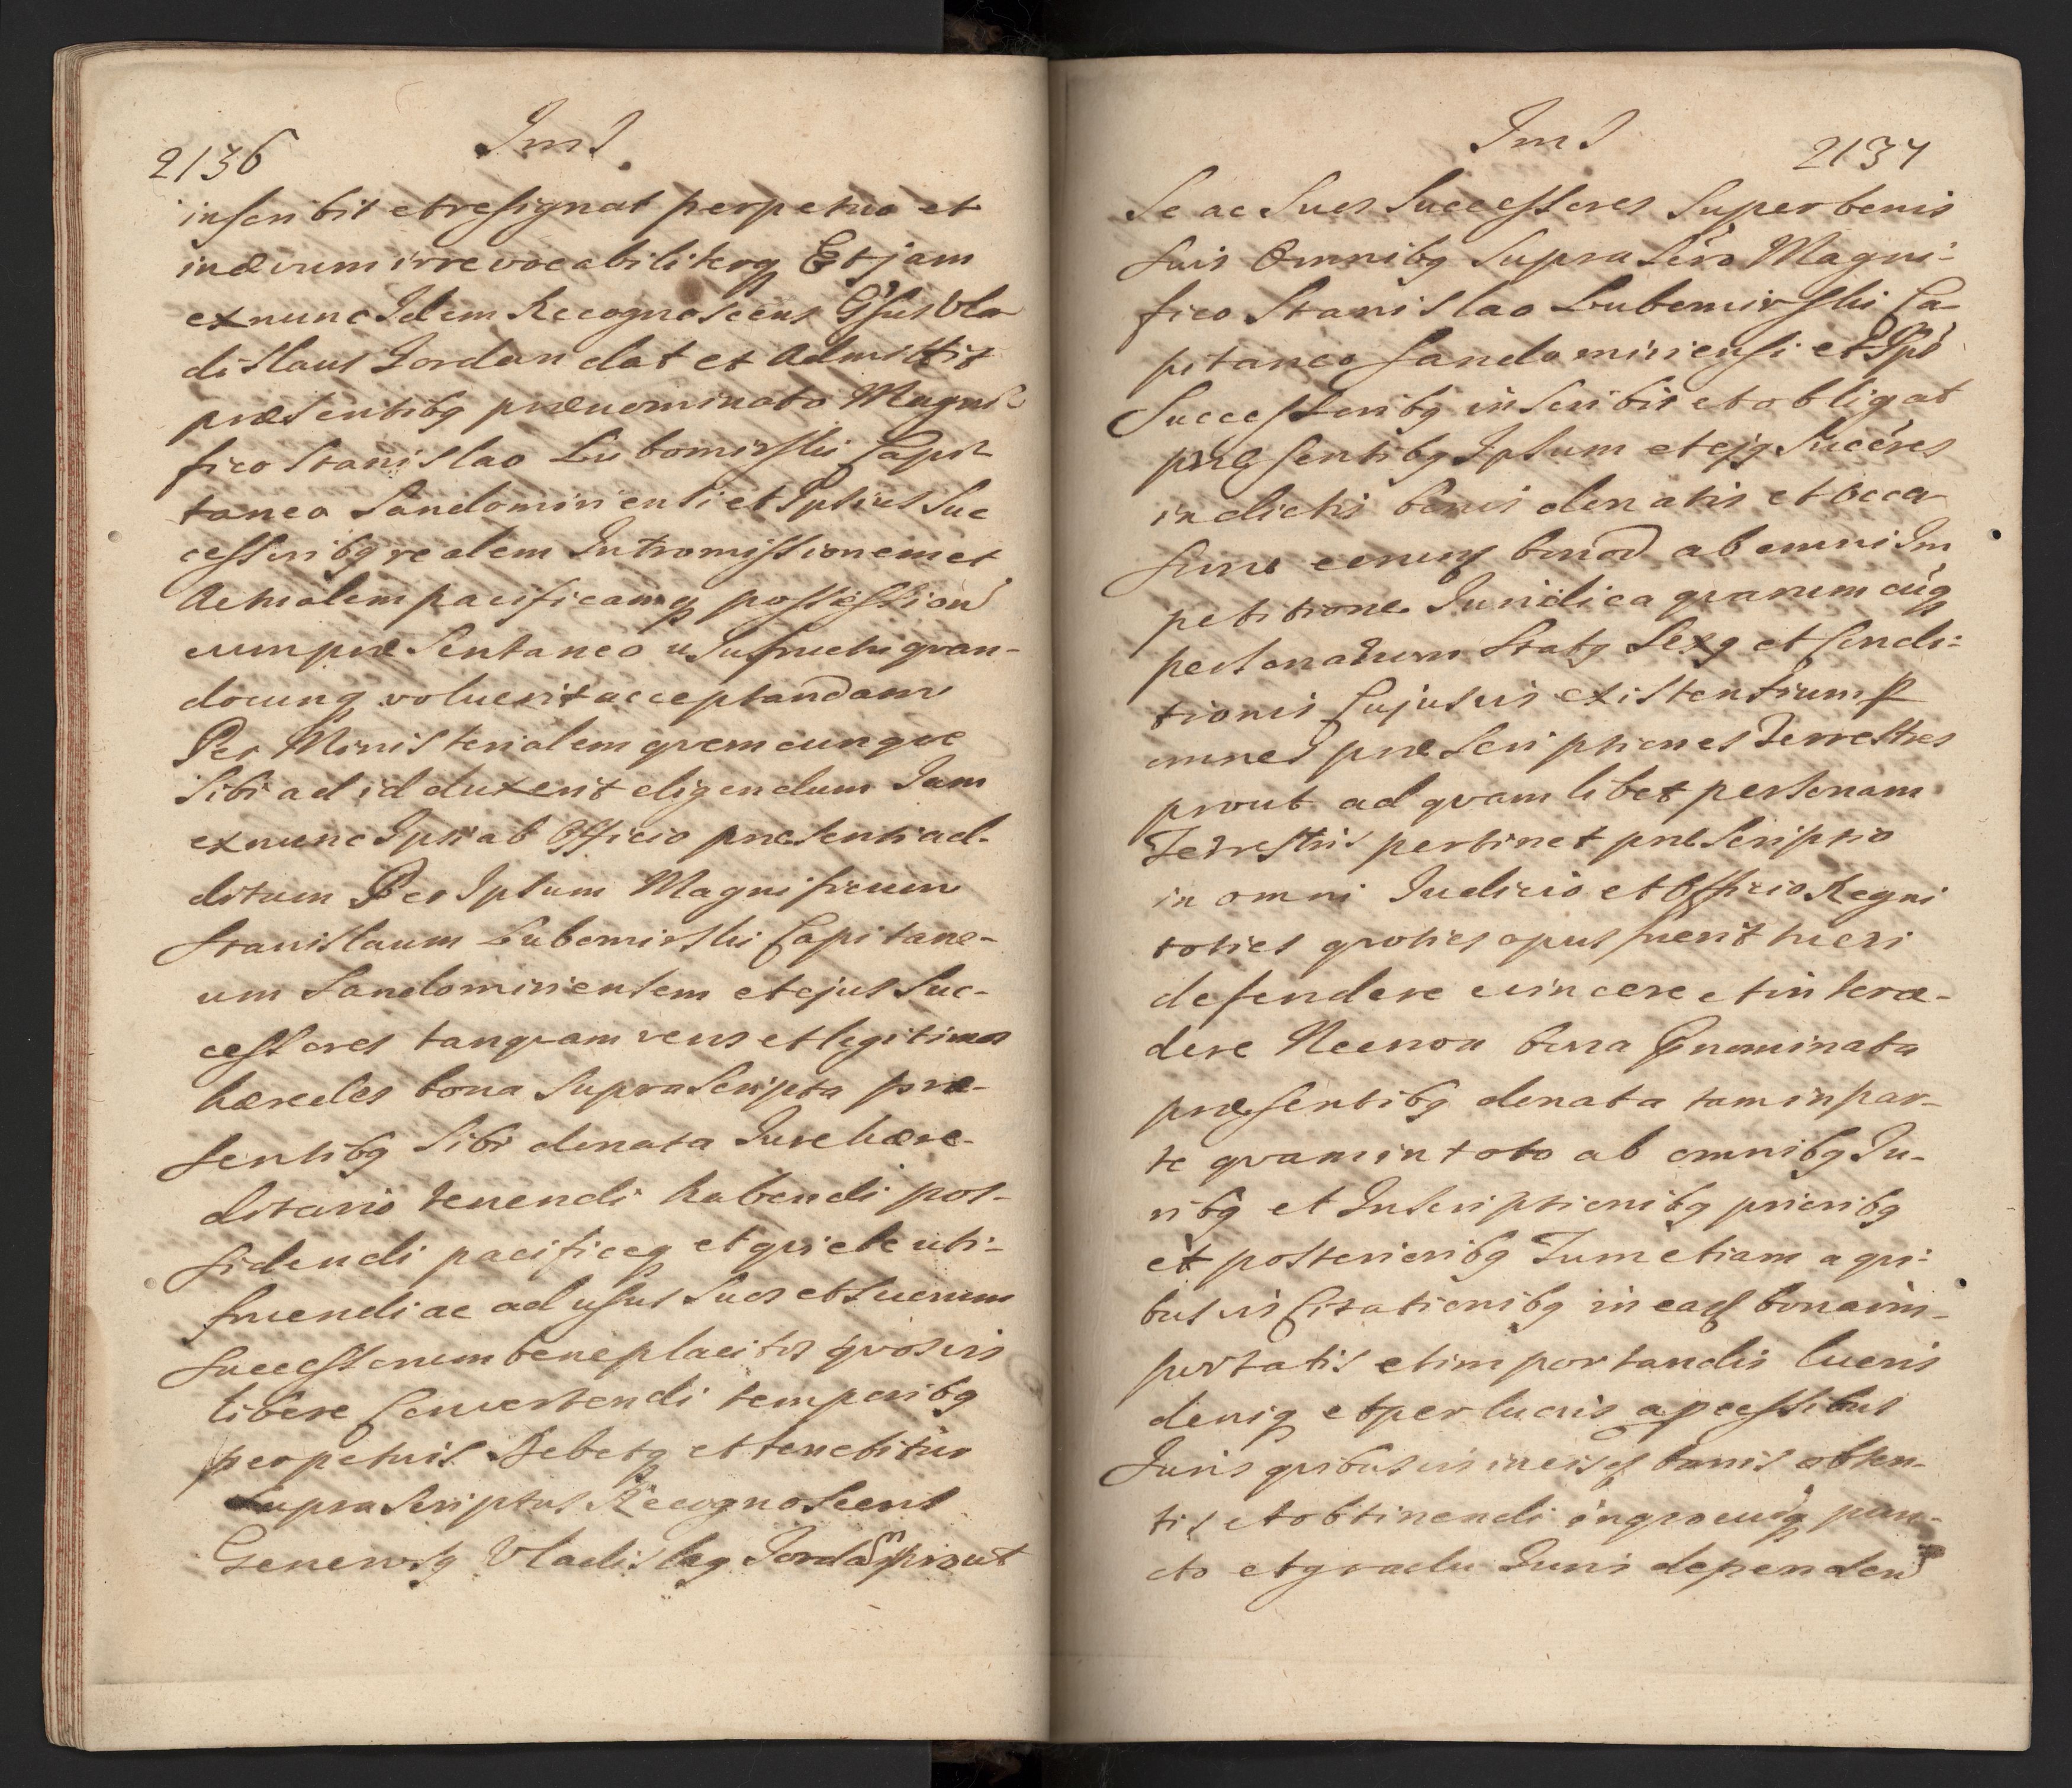 2136
Ims
inscribit et resignat perpetuo et
in ævum irrevocabiliterq Et jam
ex nunc Idem Recognoscens Gsus Vla
dislaus Jordan dat et Admittit
præsentibq prænominato Magni
fico Stanislao Lubomirski Capi
taneo Sandomiriensi et Ipsius Suc
cessoribq realem Intromissionem et
Actualem pacificamq possession
cum præsentaneo usufructu quan-
docunq voluerit acceptandam
Per Ministerialem qvemcunqve
Sibi ad id duxerit eligendum Jam
ex nunc Ipsi ab Officio præsenti ad-
ditum Per Ipsum Magnificum
Stanislaum Lubomirski Capitane-
um Sandomiriensem et ejus Suc-
cessores tanqvam veros et legitimos
hæredes bona Suprascripta præ-
sentibq Sibi donata Jure hære-
ditario tenendi habendi pos-
sidendi pacificeq et qviete uti-
fruendi ac ad usus Suos et Suorum
Successorum beneplacitos qvosvis
libere Convertendi temporibq
perpetuis Debetq et tenebitur
Suprascriptus Recognoscens
Generosq Vladislaq Jordan prout
Ims
2137
Se ac Suos Successores Super bonis
Suis Omnibq Supra Scro Magni-
fico Stanislao Lubomirski Ca-
pitaneo Sandomiriensi et Ips
Successoribq inscribit et obligat
præsentibq Ipsum et ejq Succres
in dictis bonis donatis et occa
sione eorum bonor ab omni Im
petitione Juridica qvarumcuq
personarum Statq Sexq et Condi-
tionis Cujusvis existentium p
omnes præscriptiones Terrestres
prout ad qvamlibet personam
Terrestris pertinet præscriptio
in omni Judicio et Officio Regni
toties qvoties opus fuerit tueri
defendere evincere et interce-
dere Necnon bona Prnominata
præsentibq donata tam in par-
te qvam in toto ab omnibq Ju-
ribq et Inscriptionibq prioribq
et posterioribq Tum etiam a qvi-
busvis Citationibq in eaq bona im-
portatis et importandis lucris
deniq et perlucris a pcessibus
Juris qvibusvis in eisq bonis obten-
tis et obtinendi inqvocuq pun-
cto et gradu Juris dependen